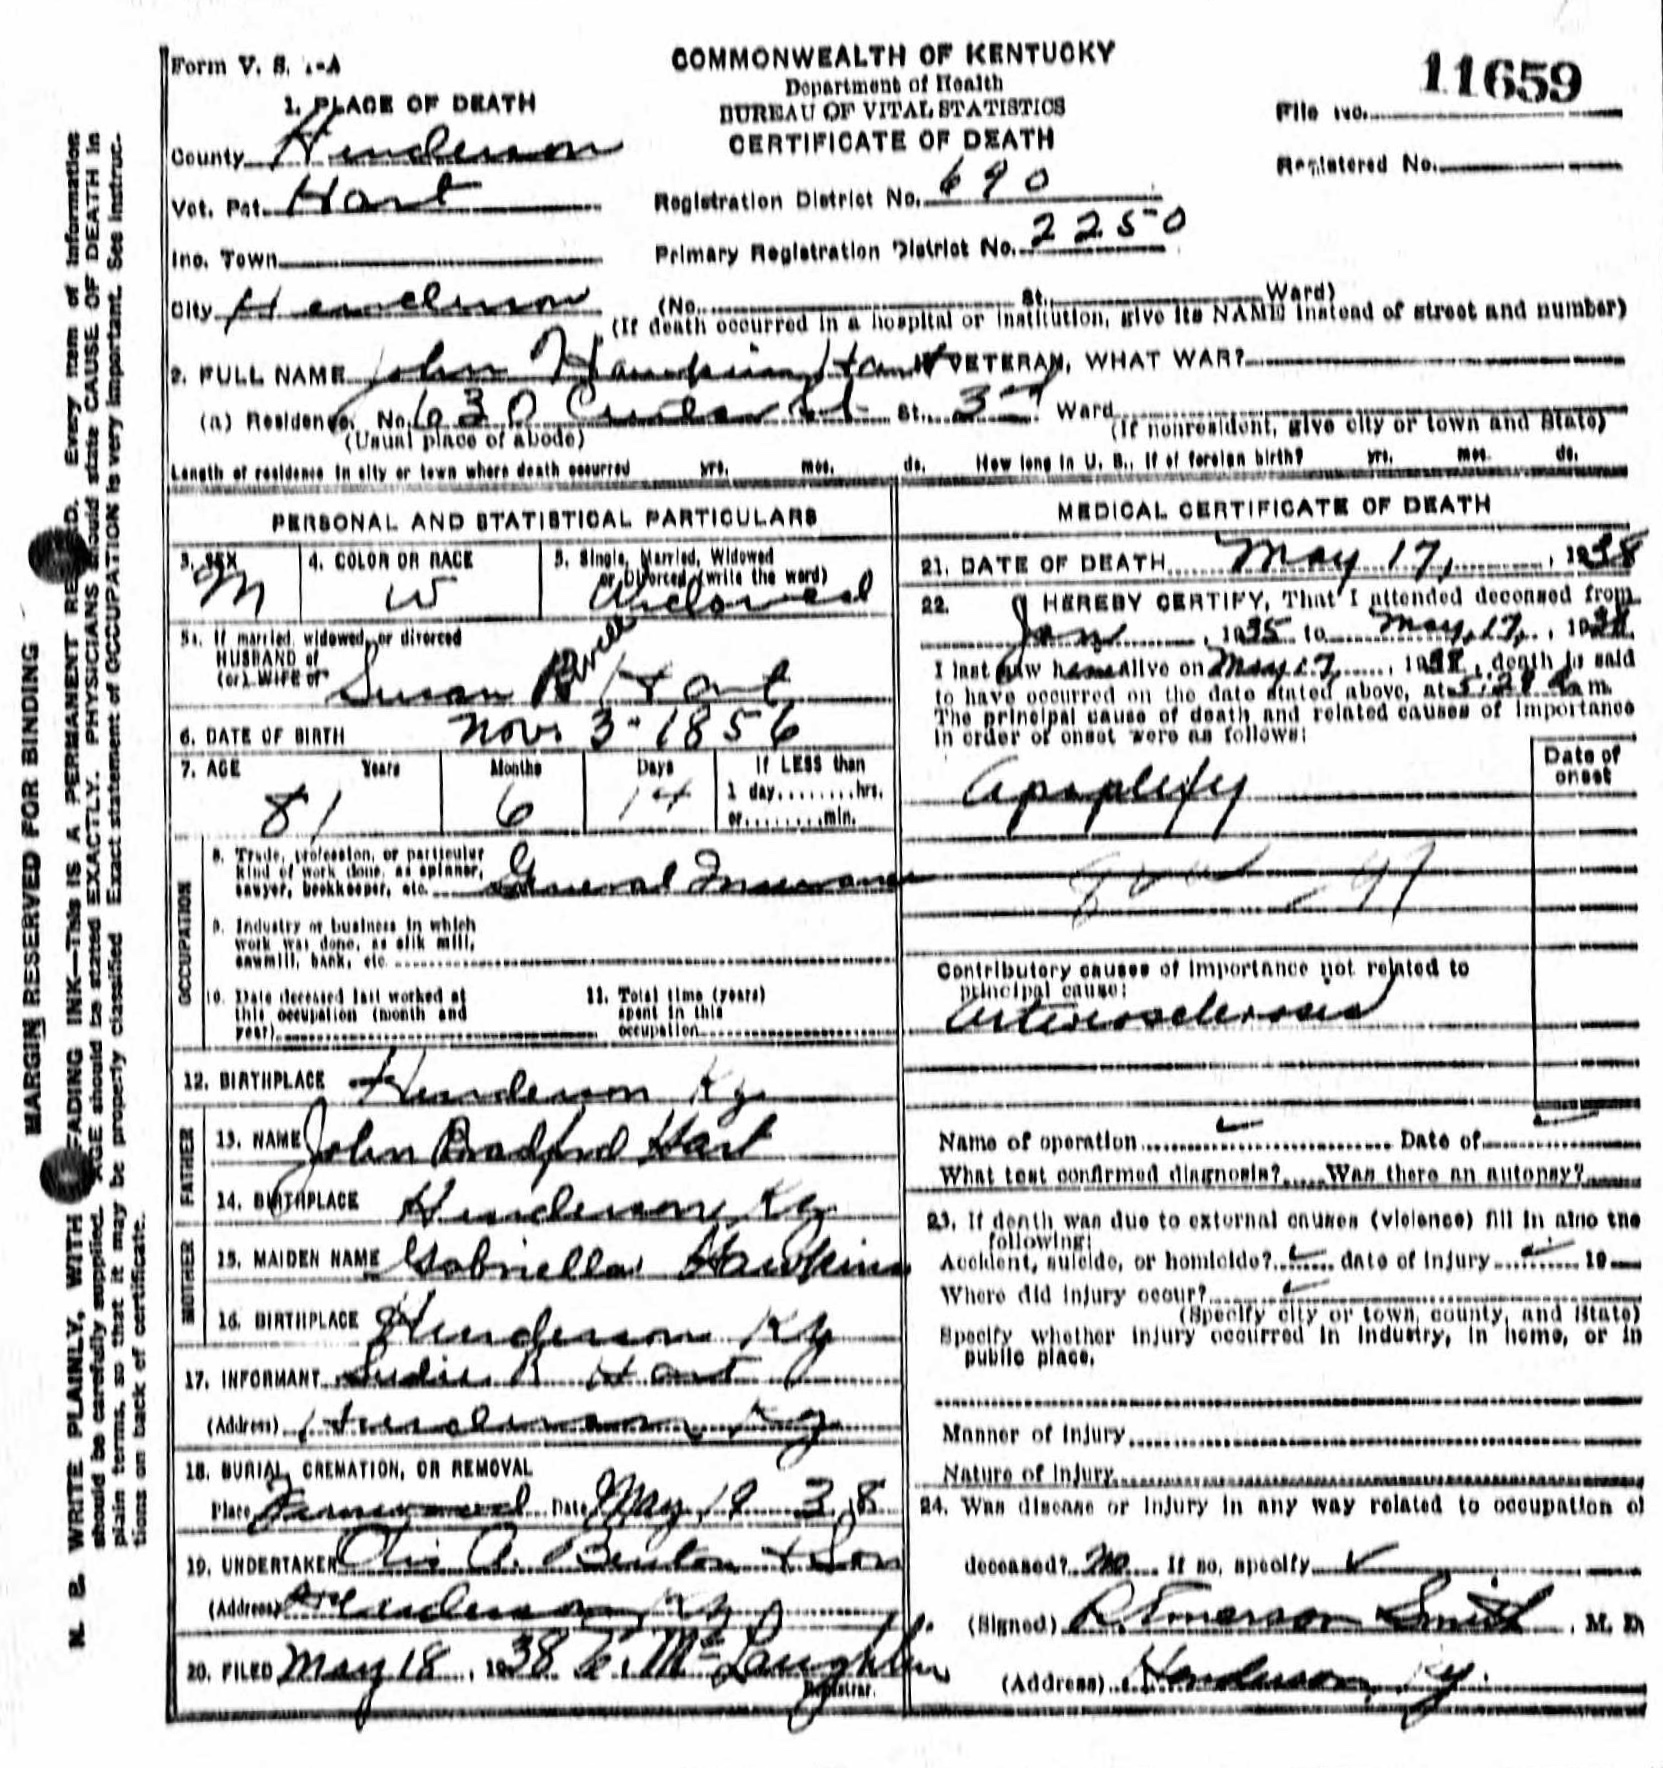 Form V. S. 1-A
COMMONWEALTH OF KENTUCKY
Department of Health
BUREAU OF VITAL STATISTICS
CERTIFICATE OF DEATH
11659
File No.
Registered No.
1. PLACE OF DEATH
County Henderson
Vot. Pct. Hart
Registration District No. 690
Inc. Town
Primary Registration District No. 2250
City Henderson (No. St. Ward)
(If death occurred in a hospital or institution, give its NAME instead of street and number)
2. FULL NAME John Hawkins Hart IF VETERAN, WHAT WAR?
(a) Residence. No. 630 St. 3rd Ward
(Usual place of abode) (If nonresident, give city or town and State)
Length of residence in city or town where death occurred yrs. mos. ds. How long in U. S., if of foreign birth? yrs. mos. ds.
PERSONAL AND STATISTICAL PARTICULARS
3. SEX M
4. COLOR OR RACE W
5. Single, Married, Widowed
or Divorced (write the word)
Widowed
5a. If married, widowed, or divorced
HUSBAND of
(or) WIFE of
Susan Hart
6. DATE OF BIRTH Nov. 3-1856
7. AGE Years Months Days If LESS than
81 6 14 1 day........hrs.
or........min.
OCCUPATION
8. Trade, profession, or particular
kind of work done, as spinner,
sawyer, bookkeeper, etc. General Insurance
9. Industry or business in which
work was done, as silk mill,
sawmill, bank, etc.
10. Date deceased last worked at
this occupation (month and
year)
11. Total time (years)
spent in this
occupation
12. BIRTHPLACE Henderson Ky
FATHER
13. NAME John Bradford Hart
14. BIRTHPLACE Henderson Ky
MOTHER
15. MAIDEN NAME Gabriella Hawkins
16. BIRTHPLACE Henderson Ky
17. INFORMANT Sudie R Hart
(Address) Henderson Ky
18. BURIAL, CREMATION, OR REMOVAL
Place Fernwood Date May 19 38
19. UNDERTAKER A. Benton & Son
(Address) Henderson, Ky
20. FILED May 18, 1938 McLaughlin
Registrar.
MEDICAL CERTIFICATE OF DEATH
21. DATE OF DEATH May 17, 1938
22. I HEREBY CERTIFY, That I attended deceased from
Jan , 1935 to May, 17, , 1938
I last saw him alive on May 17, 1938, death is said
to have occurred on the date stated above, at 5:20 a m.
The principal cause of death and related causes of importance
in order of onset were as follows:
Date of
onset
Apoplexy
Contributory causes of importance not related to
principal cause:
Arteriosclerosis
Name of operation Date of
What test confirmed diagnosis? Was there an autopsy?
23. If death was due to external causes (violence) fill in also the
following:
Accident, suicide, or homicide? date of injury 19
Where did injury occur?
(Specify city or town, county, and State)
Specify whether injury occurred in industry, in home, or in
public place.
Manner of injury
Nature of injury
24. Was disease or injury in any way related to occupation of
deceased? no If so, specify
(Signed) R. Emerson Smith, M. D.
(Address) Henderson, Ky.
MARGIN RESERVED FOR BINDING
N. B. WRITE PLAINLY, WITH UNFADING INK—THIS IS A PERMANENT RECORD. Every item of information
should be carefully supplied. AGE should be stated EXACTLY. PHYSICIANS should state CAUSE OF DEATH in
plain terms, so that it may be properly classified. Exact statement of OCCUPATION is very important. See instruc-
tions on back of certificate.